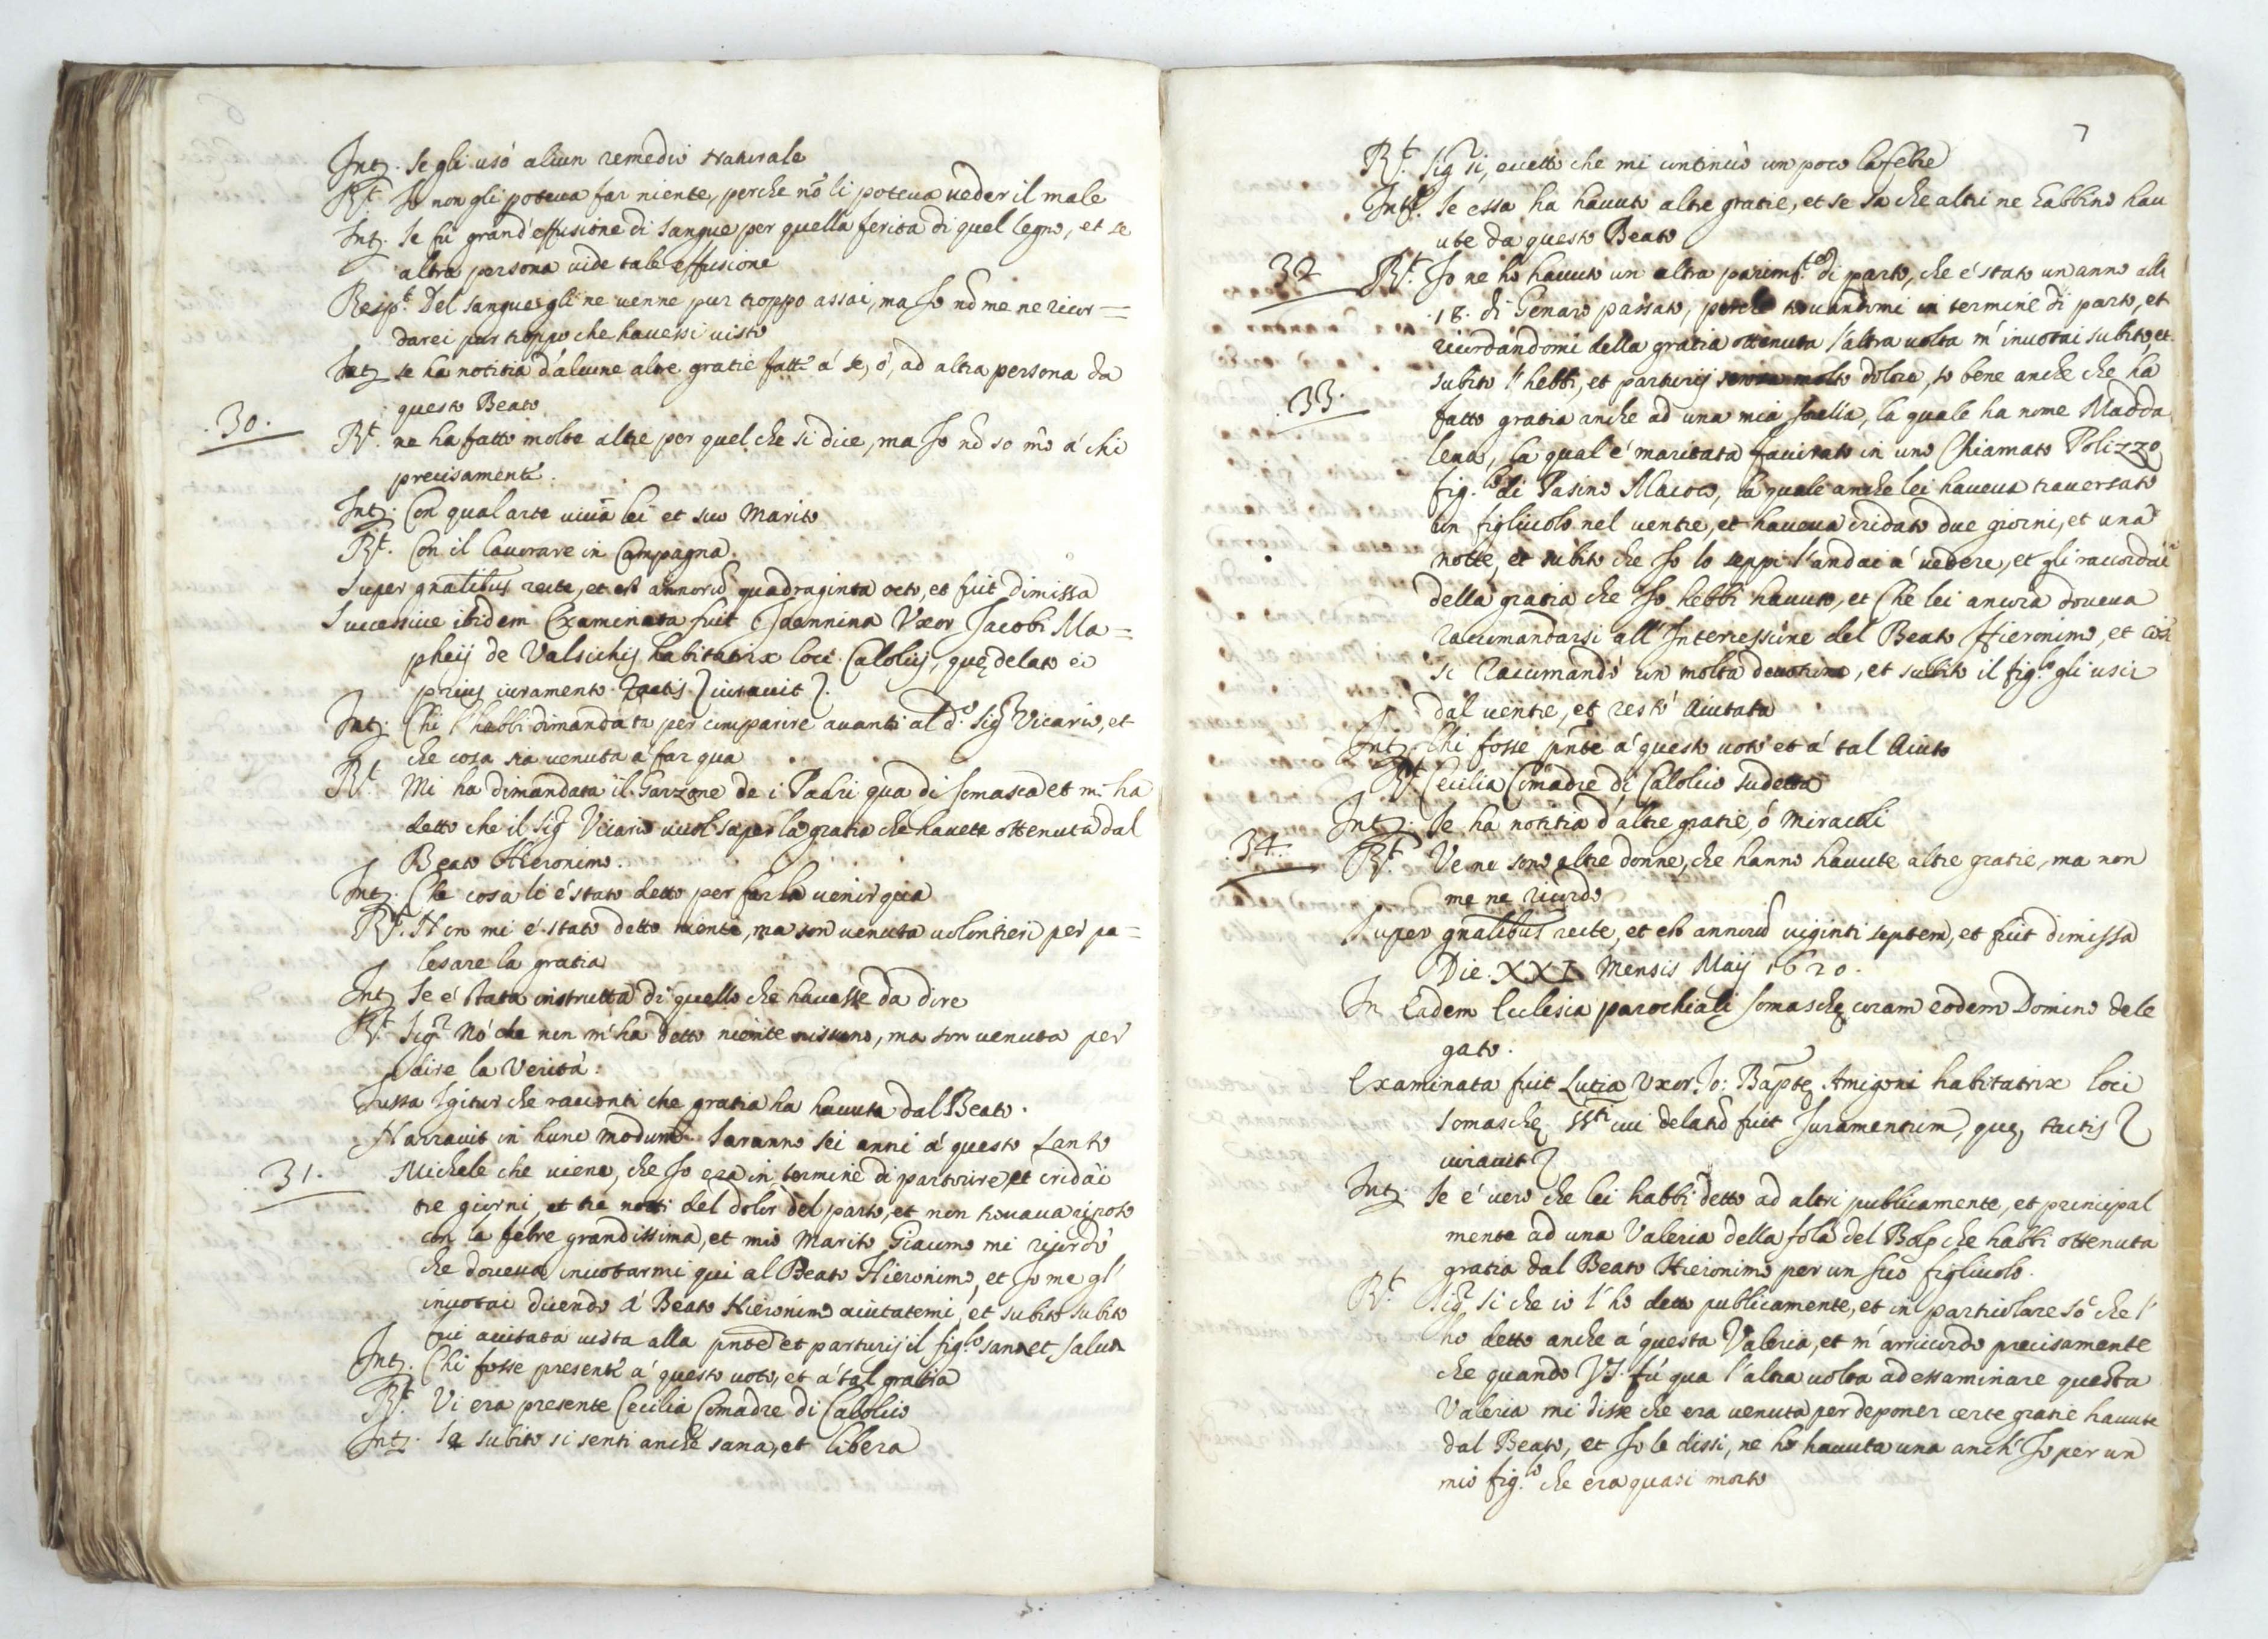 Int.ª Se gli usò alcun remedio naturale
R.t Io non gli poteva far niente, perche nõ li poteua ueder il male
Int. Se fu grand'effusione di sangue per quella ferita di quel legno, et se
altra persona uide tale effusione
Resp.t Del sangue gli ne uenne pur troppo assai, ma Io nõ me ne ricor=
darei pur troppo che hauessi uisto
Int. se ha notitia d'alcune altre gratie fatte á se, ó, ad altra persona da
questo Beato
.30.
R.t ne ha fatto molte altre per quel che si dice, ma Io nõ so mò á chi
precisamente.
Int. Con qual arte uiua lei et suo Marito
R.t Con il lauorare in Campagna.
Super gnalibus recte, et est annorũ quadraginta octo, et fuit dimissa
Successiue ibidem Examinata fuit Joannina Vxor Jacobi Ma=
pheij de Valsichijs habitatrix loci Calolcij, quę delato ei
prius iuramento tactis iurauit.
Int. Chi l'habbi dimandata per comparire auanti al d.º Sig.r Vicario, et
che cosa sia venuta a far qua
R.t Mi ha dimandata il Garzone de i Padri qua di Somasca et m'ha
detto che il Sig.r Vicario vuol saper la gratia che hauete ottenuta dal
Beato Hieronimo.
Int. Che cosa li é stato detto per farla venir qua
R.t Non mi é stato detto niente, ma son uenuta uolontieri per pa=
lesare la gratia
Int. Se é stata instrutta di quello che hauesse da dire
R.t Sig.r Nó che non m'ha detto niente nissuno, ma son uenuta per
dire la Verità.
Jussa Igitur che racconti che gratia ha hauuta dal Beato.
Narrauit in hunc modum. Saranno sei anni á questo Santo
31.
Michele che uiene, che Io era in termine di parturire, et cridai
tre giorni, et tre notti del dolor del parto, et non trouaua riposo
con la febre grandissima, et mio Marito Giacomo mi ricordò
che doueua inuotarmi qui al Beato Hieronimo, et Io me gl'
inuotai dicendo á Beato Hieronimo aiutatemi, et subito subito
fui aiutata uista alla pñte et parturij il fig.lo sana et salua
Int. Chi fosse presente á questo uoto, et á tal gratia
R.t Vi era presente Cecilia Comadre di Calolcio
Int. Se subito si senti anche sana, et libera
7
R.t Sig.r si, eccetto che mi continuò un poco la febre
Int. Se essa ha hauuto altre gratie, et se sa che altri ne habbino hau
ute da questo Beato
32
R.t Io ne ho hauuto un altra parimte di parto, che é stato un anno alli
.18. di Genaro passato, perche trouandomi in termine di parto, et
ricordandomi della gratia ottenuta l'altra uolta m'inuotai subito, et
subito l'hebbi, et parturij senza molto dolore, so bene anche che ha
.33.
fatto gratia anche ad una mia sorella, la quale ha nome Madda
lena, la qual é maritata in uno Chiamato Polizzo
fig.lo di Pasino Macoco, la quale anche lei haueua trauersato
un figliuolo nel uentre, et haueua cridato due giorni, et una
notte, et subito che Io lo seppi l'andai á uedere, et gli raccordai
della gratia che Io hebbi hauuto, et Che lei ancora doueua
racomandarsi all'Intercessione del Beato Hieronimo, et così
si Racomandò con molta deuotione, et subito il fig.lo gli uscì
dal uentre, et restò Aiutata
Int. Chi fosse pñte á questo uoto et á tal Aiuto
R.t Cecilia Comadre di Calolcio sudetta
Int. Se ha notitia d'altre gratie, ó Miracoli
.34.
R.t Ve ne sono altre donne, che hanno hauute altre gratie, ma non
me ne ricordo
Super gnalibus recte, et est annorũ uiginti septem, et fuit dimissa
Die XXI Mensis Maij 1620.
In Eadem Ecclesia parochiali Somaschę coram eodem Domino dele
gato.
Examinata fuit Lutia Vxor Jo: Baptę Amigoni habitatrix loci
Somaschę cui delatũ fuit Juramentum, quę, tactis
iurauit
Int. Se é uero che lei habbi detto ad altri publicamente, et principal
mente ad una Valeria della fola del che habbi ottenuta
gratia dal Beato Hieronimo per un suo figliuolo.
R.t Sig.r si che io l'hò detto publicamente, et in particolare sò che l'
ho detto anche á questa Valeria, et m'arricordo precisamente
che quando V.S. fú qua l'altra uolta ad essaminare questa
Valeria mi disse che era uenuta per deponer certe gratie hauute
dal Beato, et Io le dissi, ne ho hauuta una anch'Io per un
mio fig.lo che era quasi morto